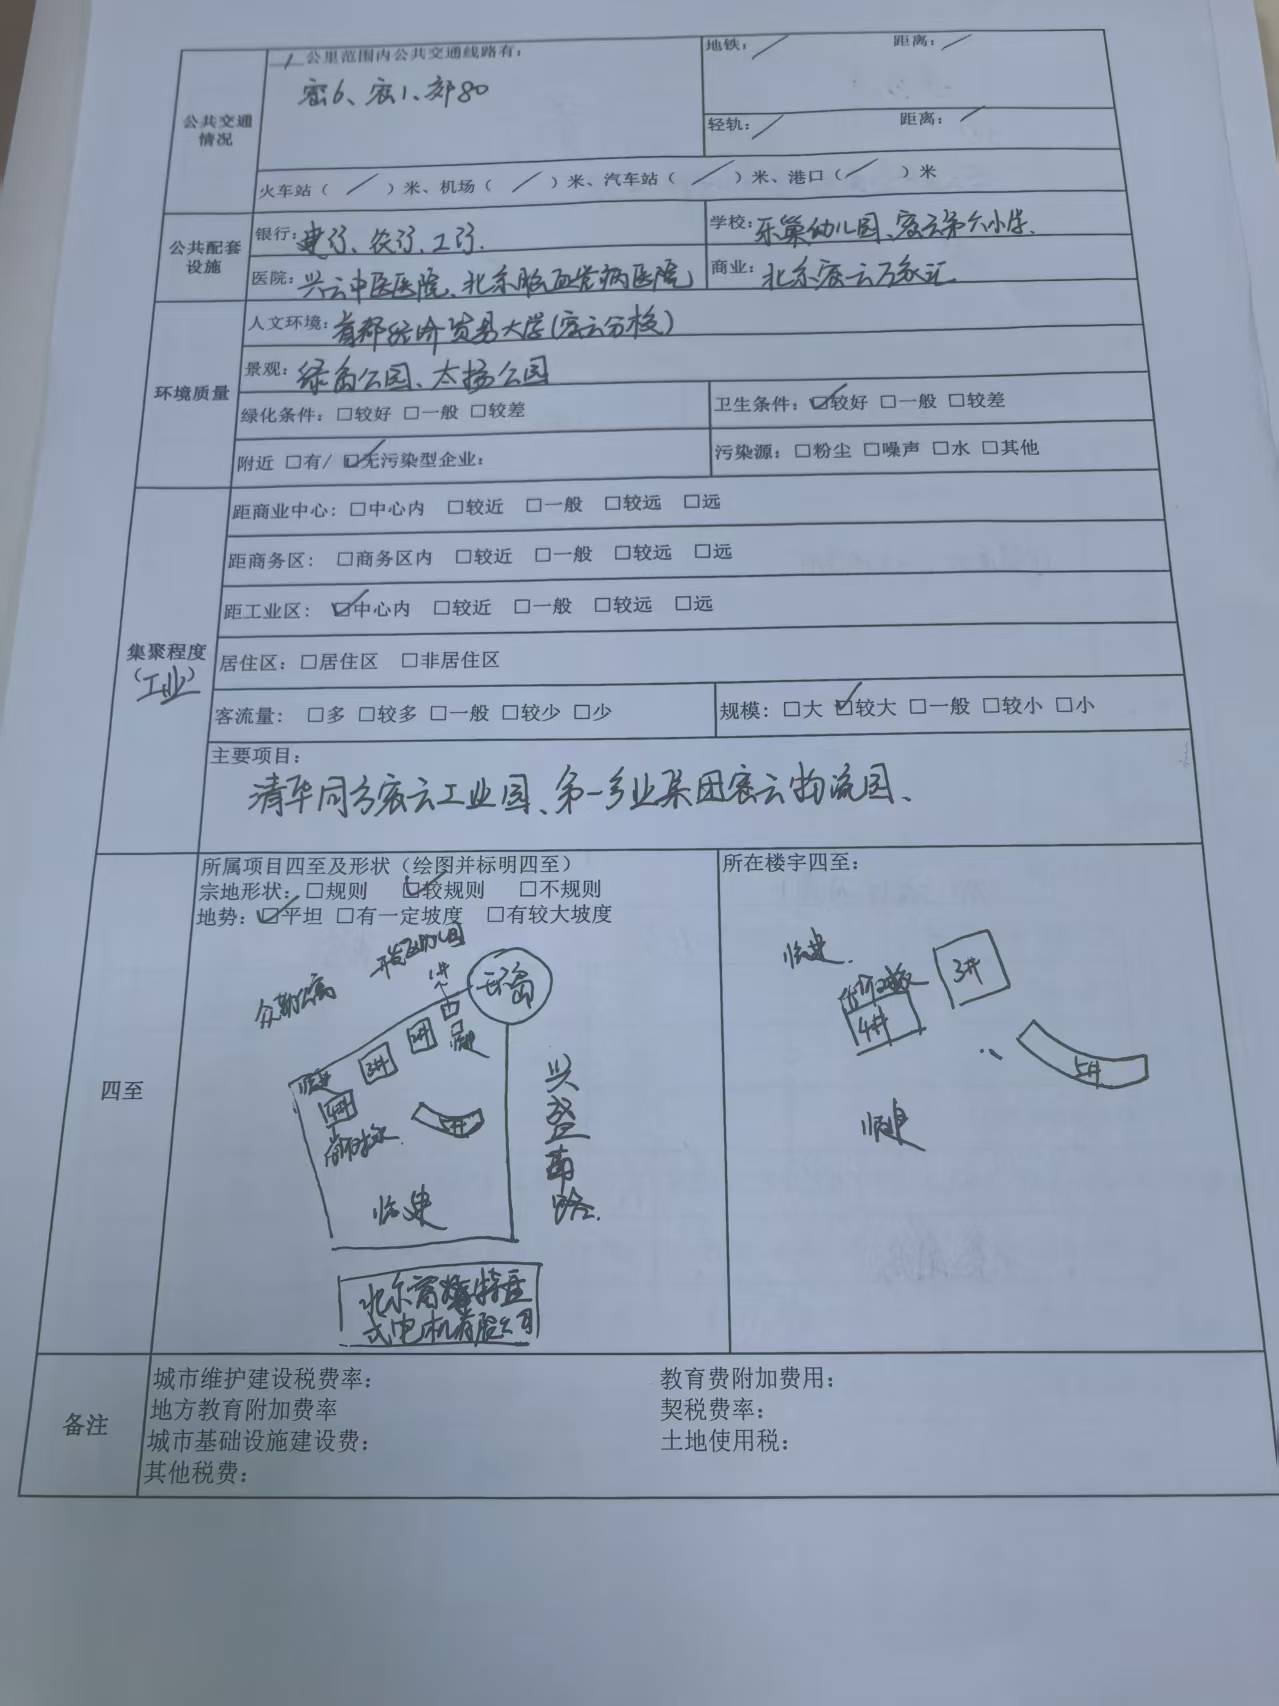 公共交通
情况
1 公里范围内公共交通线路有:
密6、密1、郊80
地铁: / 距离: /
轻轨: / 距离: /
火车站( / )米、机场( / )米、汽车站( / )米、港口( / )米
公共配套
设施
银行: 建行、农行、工行.
学校: 乐巢幼儿园、密云第六小学.
医院: 兴云中医医院、北京脑血管病医院
商业: 北京密云万象汇
环境质量
人文环境: 首都经济贸易大学(密云分校)
景观: 绿岛公园、太扬公园
绿化条件: □较好 □一般 □较差
卫生条件: ☑较好 □一般 □较差
附近 □有/ ☑无污染型企业:
污染源: □粉尘 □噪声 □水 □其他
集聚程度
(工业)
距商业中心: □中心内 □较近 □一般 □较远 □远
距商务区: □商务区内 □较近 □一般 □较远 □远
距工业区: ☑中心内 □较近 □一般 □较远 □远
居住区: □居住区 □非居住区
客流量: □多 □较多 □一般 □较少 □少
规模: □大 ☑较大 □一般 □较小 □小
主要项目:
清华同方密云工业园、第一产业集团密云物流园、
四至
所属项目四至及形状(绘图并标明四至)
宗地形状: □规则 ☑较规则 □不规则
地势: ☑平坦 □有一定坡度 □有较大坡度
开发区幼儿园
众勤公寓
1#
环岛
2#
3#
临建
4#
估价对象
5#
兴盛南路.
临建
式电机有限公司
所在楼宇四至:
临建.
3#
估价对象
4#
5#
临建
备注
城市维护建设税费率:
教育费附加费用:
地方教育附加费率
契税费率:
城市基础设施建设费:
土地使用税:
其他税费: